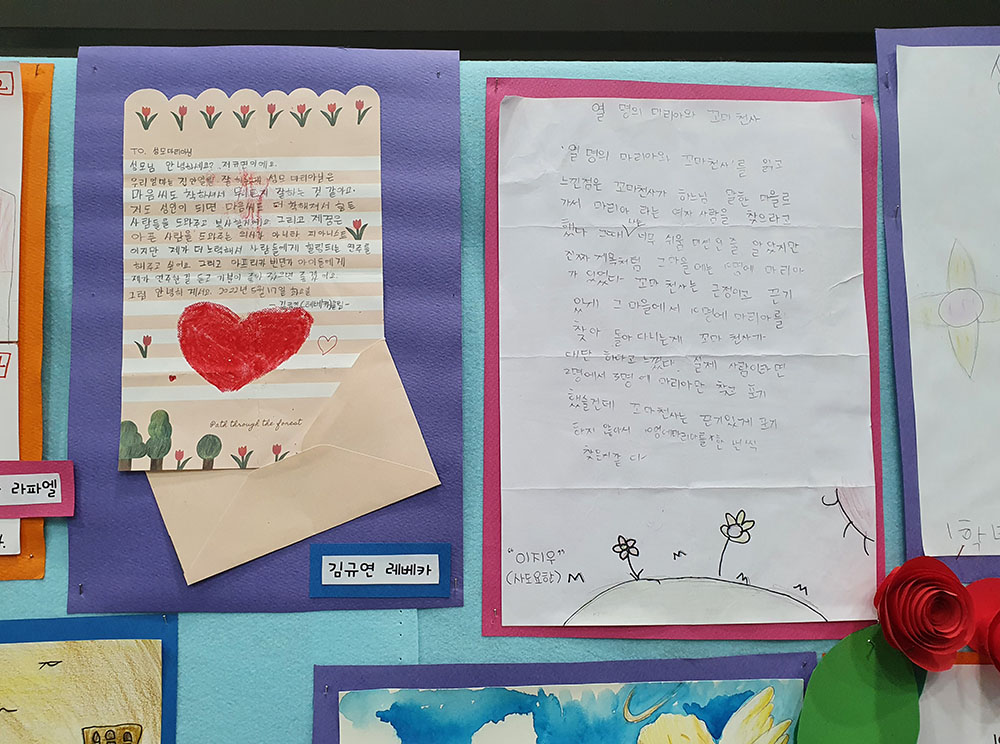 TO. 성모마리아님
성모님 안녕하세요? 저 규연이에요.
우리 엄마는 성모 마리아님은
마음씨도 착하셔서 무엇이든지 잘하는 것 같아요.
저도 성인이 되면 마음씨도 더 착해져서 힘든
사람들을 도와주고 봉사할거에요 그리고 제 꿈은
아픈 사람을 도와주는 의사가 아니라 피아니스트
이지만 제가 더 노력해서 사람들에게 힐링되는 연주를
해주고 싶어요. 그리고 아프리카 빈민가 아이들에게
제가 연주한 걸 듣고 기분이 좋아 졌으면 좋겠어요.
그럼 안녕히 계세요. 2022년 5월 17일 화요일
- 김규연(레베카)올림 -
Path through the forest
김규연 레베카
라파엘
열 명의 마리아와 꼬마 천사
'열 명의 마리아와 꼬마천사'를 읽고
느낀점은 꼬마천사가 하느님 말한 마을로
가서 마리아 라는 여자 사람을 찾으라고
했다 그때 너무 쉬움 미션인 줄 알았지만
진짜 제목처럼 그 마을에는 10명에 마리아
가 있었다. 꼬마 천사는 긍정이고 끈기
있게 그 마을에서 10명에 마리아를
찾아 돌아 다니는게 꼬마 천사가
대단 하다고 느꼈다. 실제 사람이라면
2명에서 3명에 마리아만 찾고 포기
했을건데 꼬마천사는 끈기있게 포기
하지 않아서 10명에 마리아를 한 번씩
찾은거 같다
"이지우"
(사도요한)
1학년